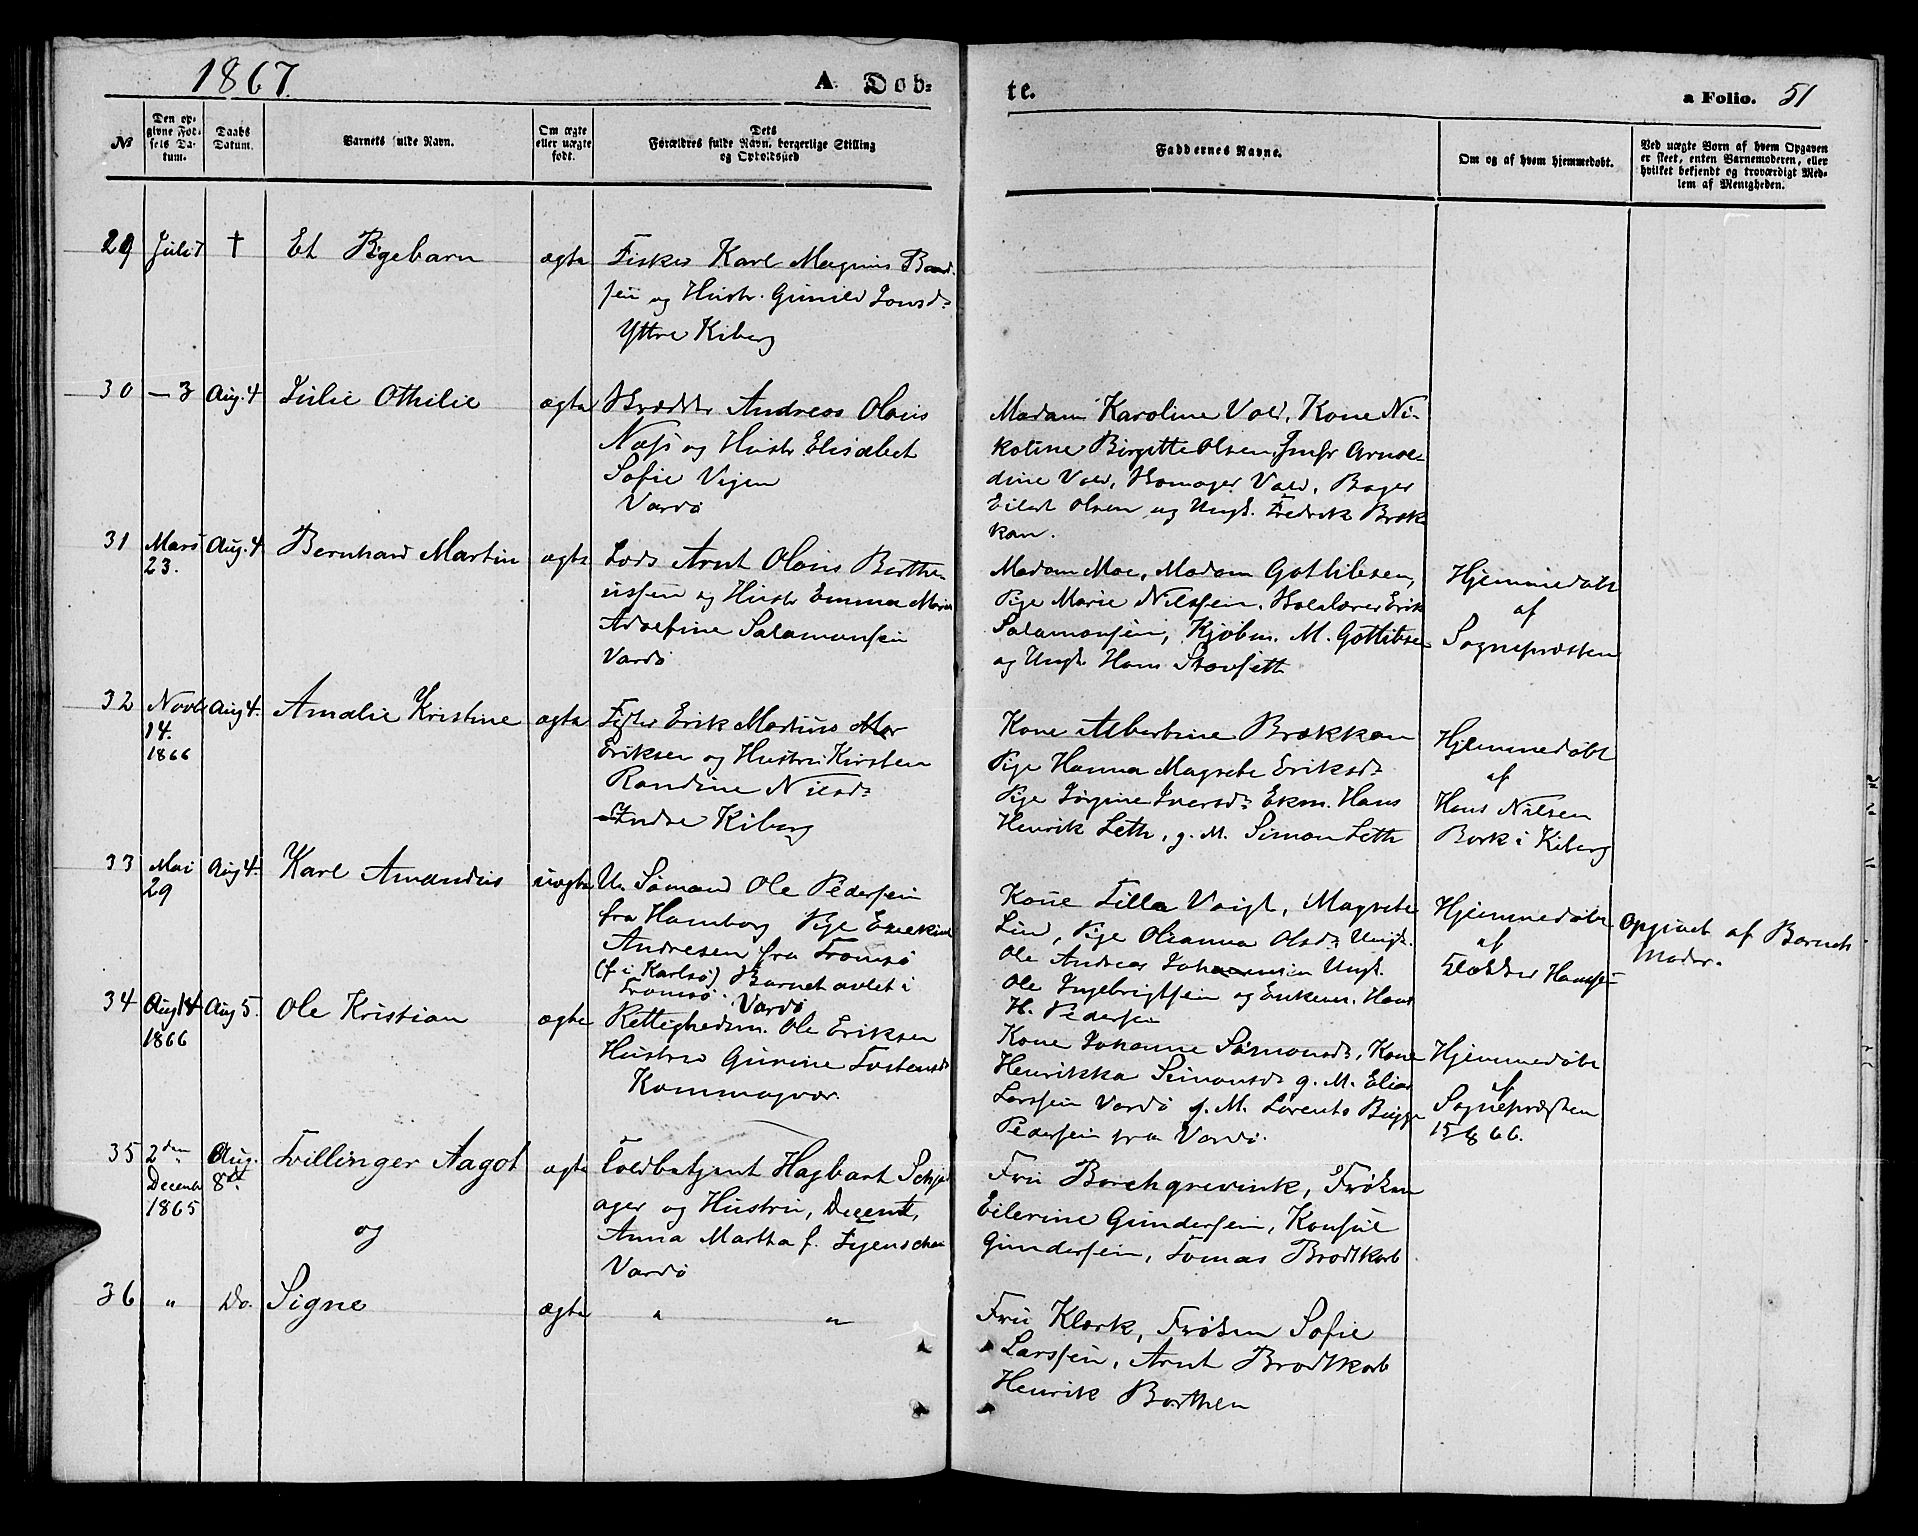 1867.
A. Døb-
te.
a Folio. 51
№
Den op-
givne Fød-
sels Da-
tum.
Daabs
Datum.
Barnets fulde Navn.
Om ægte
eller uægte
født.
Dets
Forældres fulde Navn, borgerlige Stilling
og Opholdssted
Faddernes Navne.
Om og af hvem hjemmedøbt.
Ved uægte Børn af hvem Opgaven
er skeet, enten Barnemoderen, eller
hvilket bekjendt og troværdigt Med-
lem af Menigheden.
29 Juli 7 † Et Pigebarn ægte Fisker Karl Magnus
sen og Hustr. Gunild Jonsd.
Yttre Kiberg
30 — 3 Aug. 4 Julie Othilie ægte Kræmmer Andreas Olaus
Næss og Hustr Elisabet
Sofie Vigen
Vardø
Madam Karoline Vold, Kone Ni-
koline Birgitte Olsen, Jmfr Arnol-
dine Vold, Vold, Bager
Eilert Olsen og Ungk. Fredrik Bræk-
kan.
31 Mars 23. Aug. 4 Bernhard Martin ægte Lods Arnt Olaus Berthe-
ussen og Hustr Emma Maria
Adolfine Salamonsen
Vardø
Madam Moe, Madam Gottlibsen,
Pige Marie Nilssen, Erik
Salamonsen, Kjøbm. M. Gottlibsen
og Ungk. Hans Stavseth
Hjemmedøbt
af
Sognepræsten
32 Novbr 14. 1866 Aug 4. Amalie Kristine ægte Fisker Erik Martinus
Eriksen og Hustru Kirsten
Randine Nilsd.
Indre Kiberg
Kone Albertine Brækkan
Pige Hanna Magrete Eriksd.
Pige Jørgine Iversd. Ekm. Hans
Henrik Leth, g. M. Simon Leth
Hjemmedøbt
af
Hans Nilsen
Bork i Kiberg
33 Mai 29 Aug 4. Karl Amandus uægte U. Sømand Ole Pedersen
fra Hamborg Pige
Andresen fra Tromsø
(f. i Karlsø) Barnet avlet i
Tromsø. Vardø
Kone Tilla Voigt, Magrete
Lind, Pige Olianna Olsd. Ungk.
Ole Andreas Johannesen Ungk.
Ole Ingebrigtsen og Enkem. Hans
H. Pedersen
Hjemmedøbt
af
Klokker Hanssen
Opgivet af Barnets
Moder.
34 Aug 14 1866 Aug 5. Ole Kristian ægte Rettighedsm. Ole Eriksen
Hustru Gurine Tostensd.
Kommagvær.
Kone Johanne Simonsd., Kone
Henrikka Simonsd. g. M. Elias
Larssen Vardø g. M. Lorents Bugge
Pedersen fra Vardø.
Hjemmedøbt
af
Sognepræsten
15/8 66.
35 2den Decembr 1865 Aug. 8de Tvillinger Aagot ægte Toldbetjent Hagbart Schjel-
ager og Hustru, Decent,
Anna Martha f. Fygenschou
Vardø
og
Fru Borchgrevink, Frøken
Eilerine Gundersen, Konsul
Gundersen, Tomas Brodtkorb
36 " Do. Signe ægte " "
Fru Klerk, Frøken Sofie
Larssen, Arnt Brodtkorb
Henrik Borthen